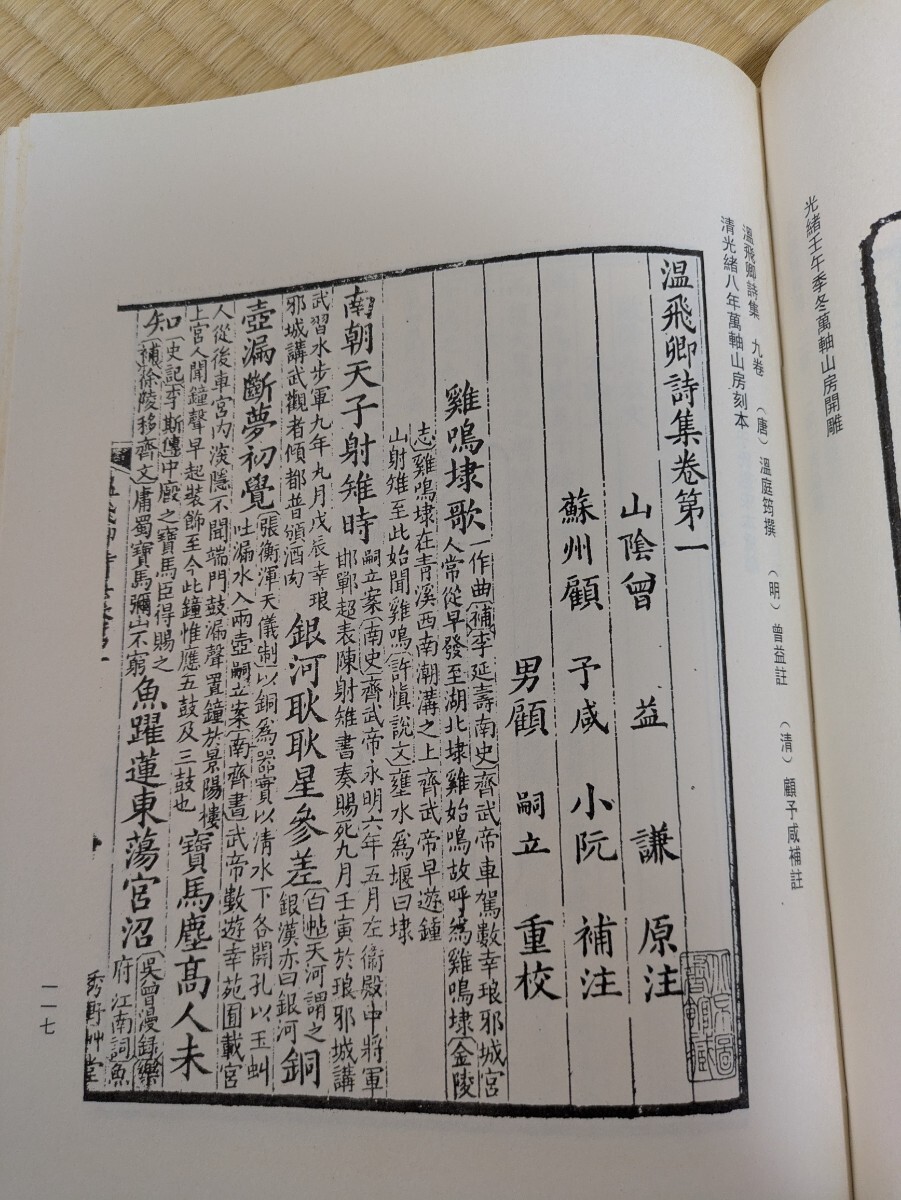 光緒壬午季冬萬軸山房開雕
溫飛卿詩集　九卷　（唐）溫庭筠撰　（明）曾益註　（清）顧予咸補註
清光緒八年萬軸山房刻本
溫飛卿詩集卷第一
山陰曾　益　謙　原注
蘇州顧　予咸　小阮　補注
男顧　嗣立　重校
雞鳴埭歌 一作曲 補 李延壽南史 齊武帝車駕數幸琅邪城宮
人常從早發至湖北埭雞始鳴故呼爲雞鳴埭 金陵
志 雞鳴埭在青溪西南潮溝之上齊武帝早遊鍾
山射雉至此始聞雞鳴 許愼說文 壅水爲堰曰埭
南朝天子射雉時 嗣立案 南史 齊武帝永明六年五月左衞殿中將軍
邯鄲超表陳射雉書奏賜死九月壬寅於琅邪城講
武習水步軍九年九月戊辰幸琅
邪城講武觀者傾都普頒酒肉
銀河耿耿星參差 百帖 天河謂之
銀漢亦曰銀河
銅
壺漏斷夢初覺 張衡渾天儀制 以銅爲器實以清水下各開孔以玉虯
吐漏水入兩壺嗣立案 南齊書 武帝數遊幸苑囿載宮
人從後車宮內深隱不聞端門鼓漏聲置鐘於景陽樓
上宮人聞鐘聲早起裝飾至今此鐘惟應五鼓及三鼓也
寶馬塵高人未
知 史記李斯傳 中廐之寶馬臣得賜之
補 徐陵移齊文 庸蜀寶馬彌山不窮
魚躍蓮東蕩宮沼 吳曾漫錄 樂
府江南詞魚
秀野艸堂
一一七